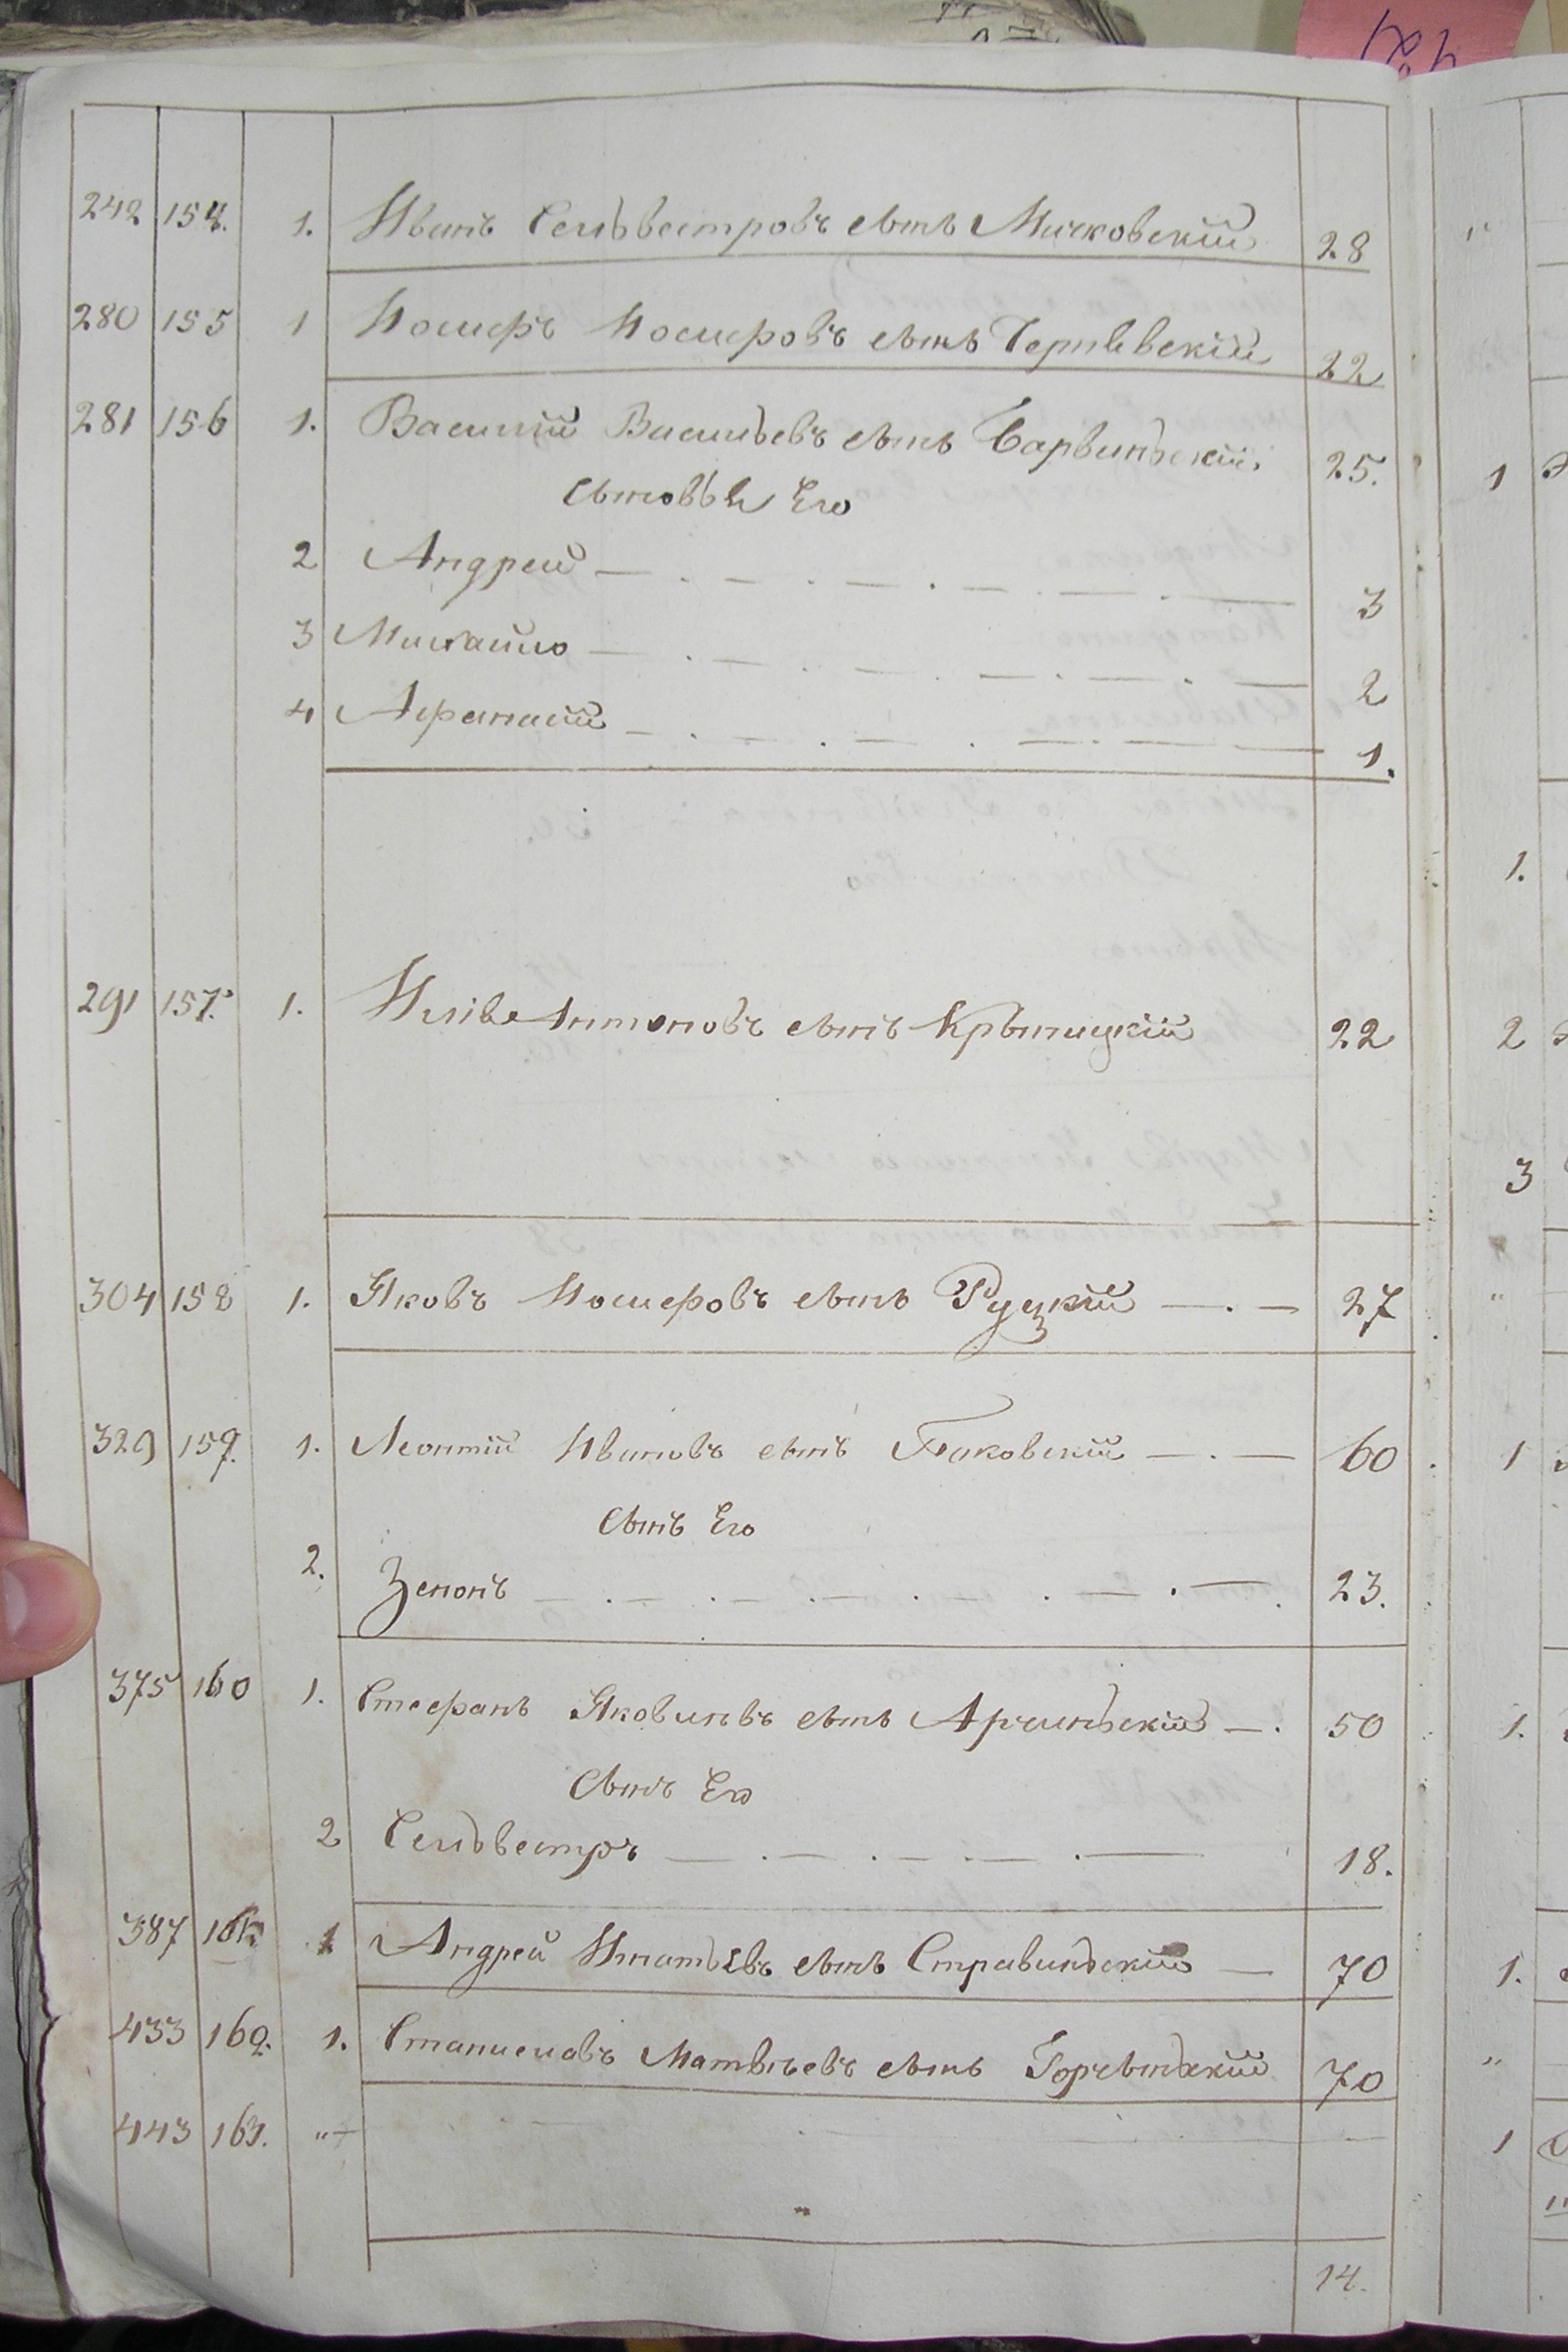 242 154. 1. Иванъ Сельвестровъ сынъ Мичковскій 28
280 155 1 Иосифъ Иосифовъ сынъ Чернѣвскій 22
281 156 1. Василій Васильевъ сынъ Барвинскій 25.
Сыновья Его
2 Андрей 3
3 Михайло 2
4 Афанасій 1.
291 157. 1. Илія Антоновъ сынъ Крыницкій 22
304 158 1. Яковъ Иосифовъ сынъ Руцкій 27
329 159. 1. Леонтій Ивановъ сынъ 60
Сынъ Его
2. Зенонъ 23.
375 160 1. Стефанъ Яковлевъ сынъ 50
Сынъ Его
2 Сельвестръ 18.
387 1 Андрей Игнатьевъ сынъ Стравинскій 70
433 162. 1. Станиславъ Матвѣевъ сынъ 70
443 163. "
14.
"
1
1.
2
3
"
1
1.
1.
"
1